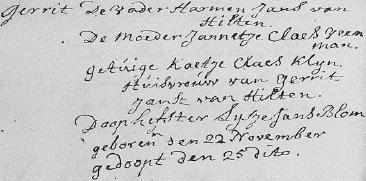 Gerrit De Vader Harmen Jans van
Hilten.
De Moeder Jannetje Claes Veen
man.
getuige Kaetje Claes Klyn.
Huisvrouw van Gerrit
Jansz van Hilten.
Doophefster Sytje Jans Blom
geboren den 22 November
gedoopt den 25 dito.